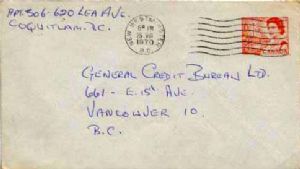 APT. 306-620 LEA AVE.
COQUITLAM. B.C.
NEW WESTMINSTER
PM
1970
B.C.
GENERAL CREDIT BUREAU LTD.
661-E. 15th AVE.
VANCOUVER 10
B.C.